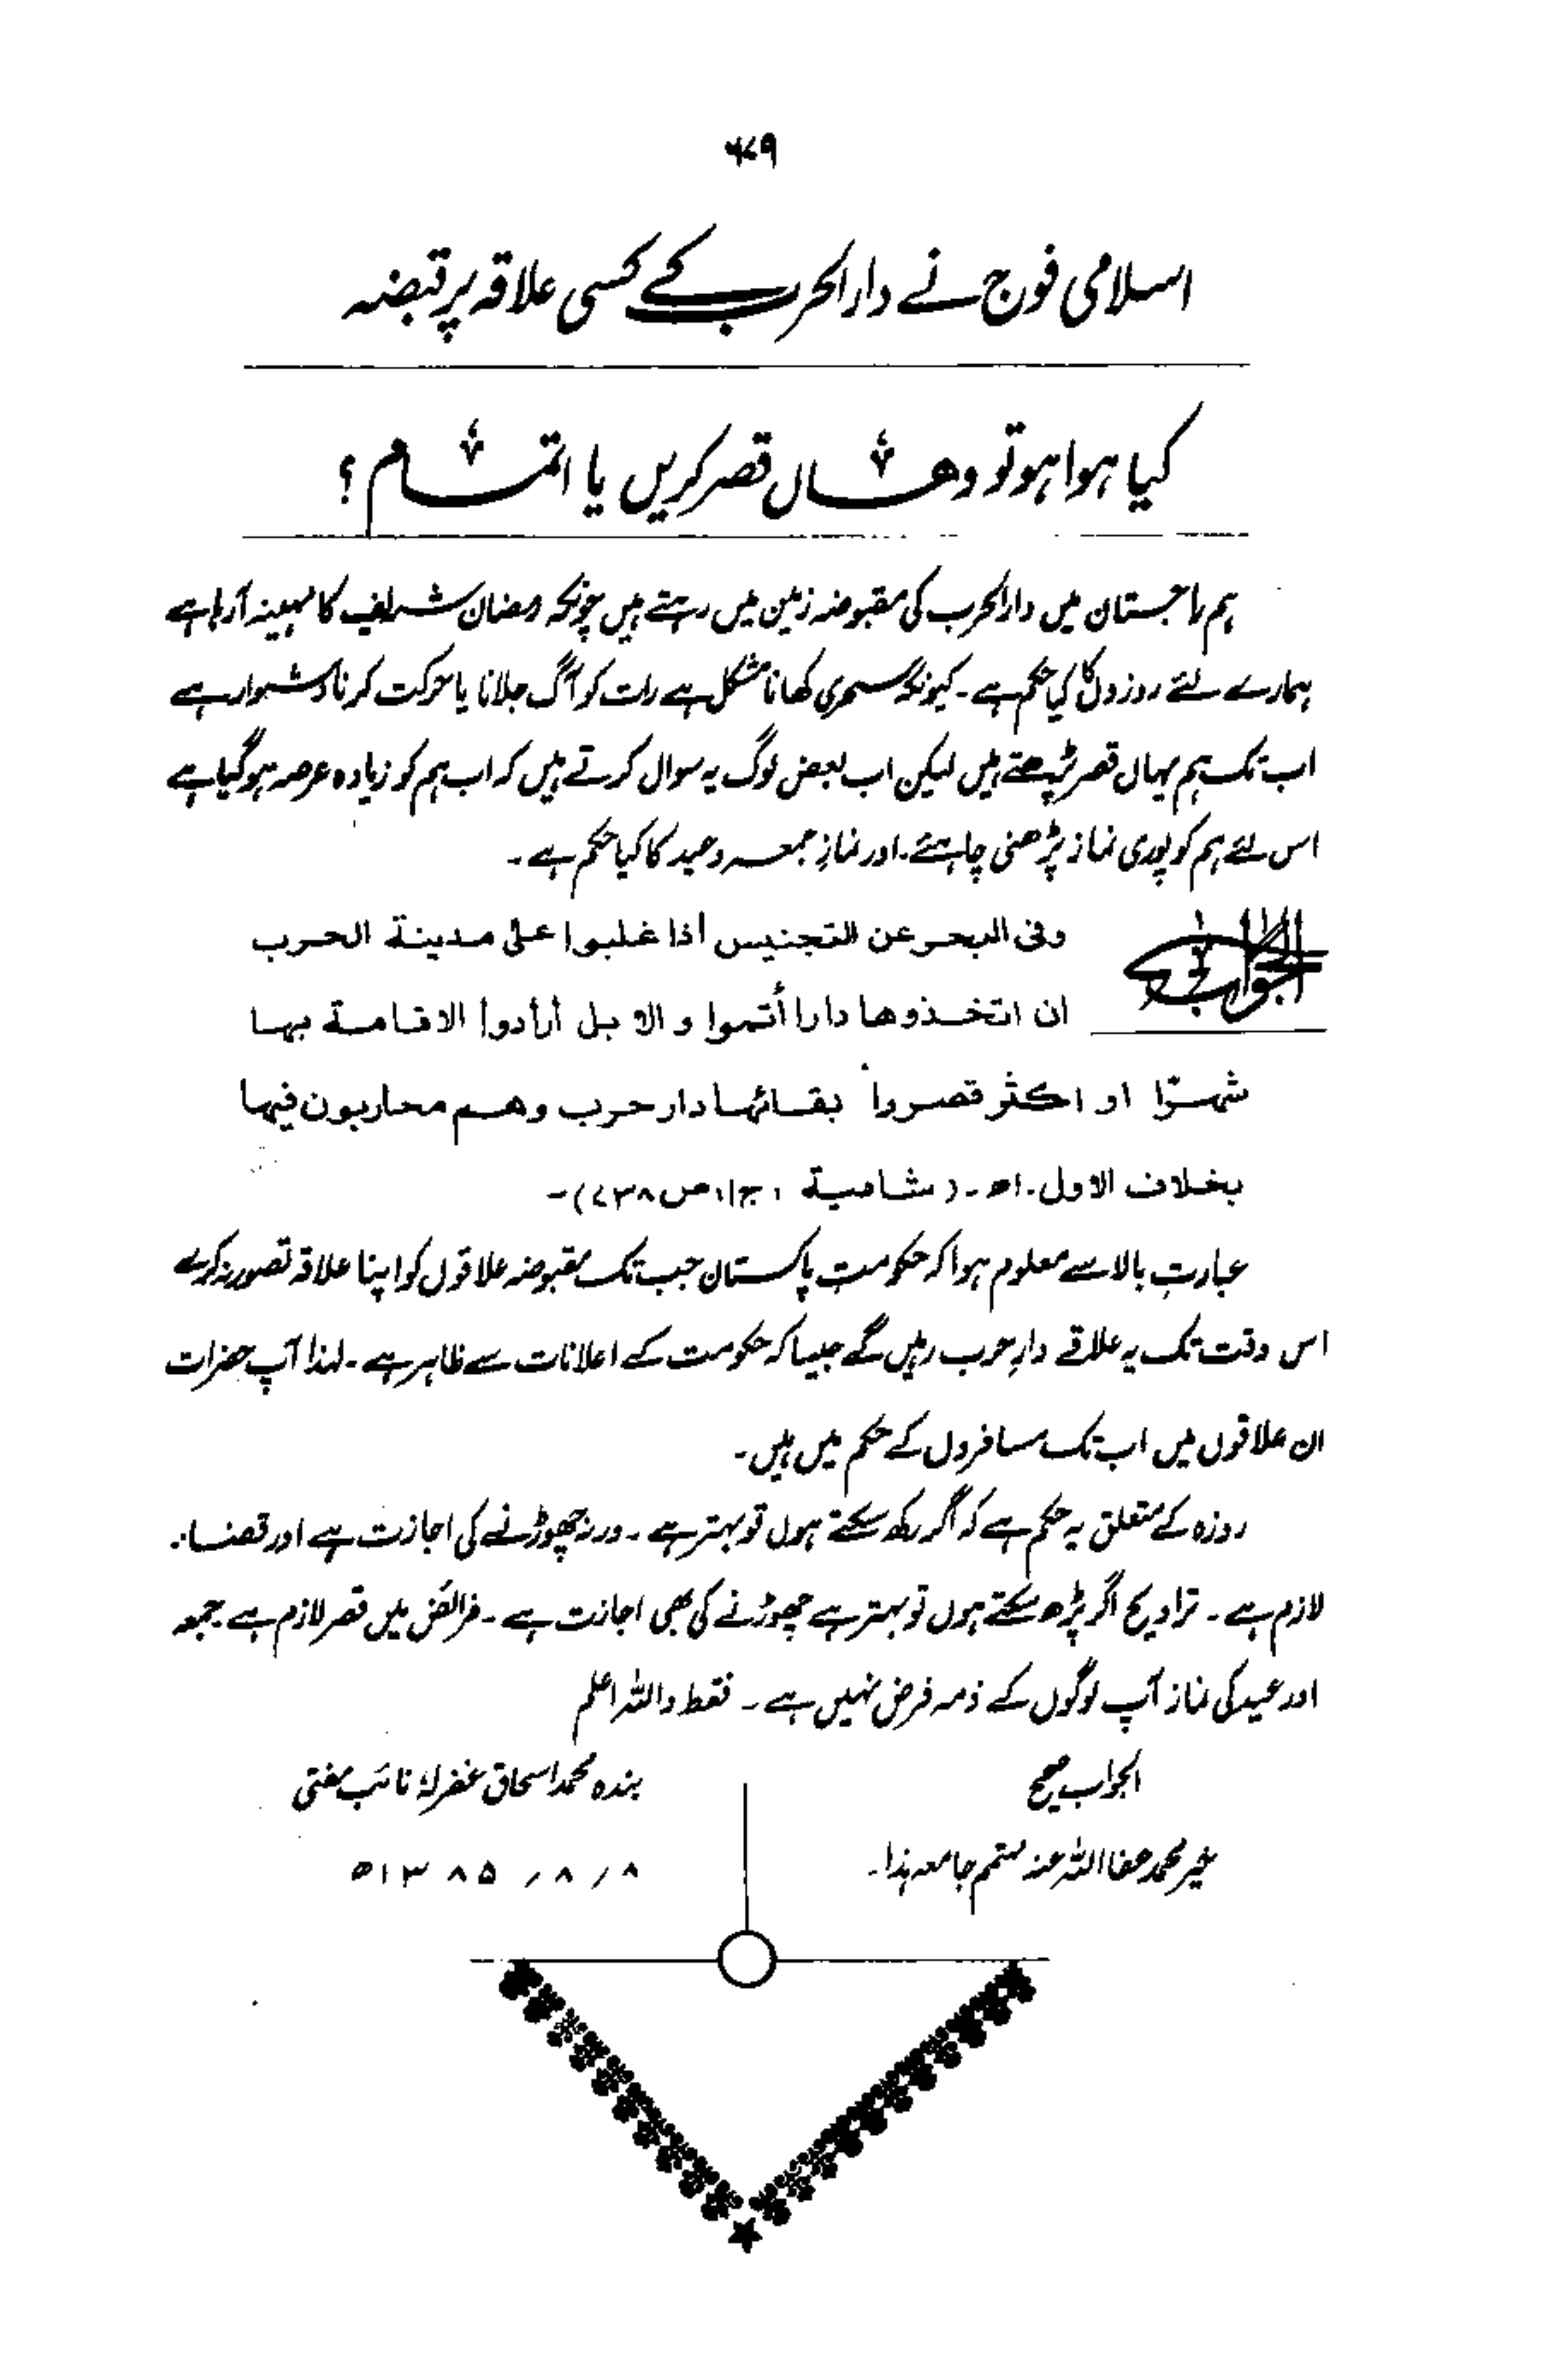 ۶۷۹
اسلامی فوج نے دارالحرب کے کسی علاقہ پر قبضہ
کیا ہوا ہو تو وہاں قصر کریں یا اتمام ؟
ہم راجستان میں دارالحرب کی مقبوضہ زمین میں رہتے ہیں چونکہ رمضان شریف کا مہینہ آرہا ہے
ہمارے لئے روزوں کا کیا حکم ہے۔ کیونکہ سحری کھانا مشکل ہے رات کو آگ جلانا یا حرکت کرنا دشوار ہے
اب تک ہم یہاں قصر پڑھتے ہیں لیکن اب بعض لوگ یہ سوال کرتے ہیں کہ اب ہم کو زیادہ عرصہ ہوگیا ہے
اس لئے ہم کو پوری نماز پڑھنی چاہئے۔ اور نمازِ جمعہ وعید کا کیا حکم ہے۔
الجواب
وفی البحر عن التجنیس اذا غلبوا علی مدینة الحرب
ان اتخذوها دارا أتموا والا بل أرادوا الاقامة بها
شهرًا او اکثر قصروا بقائها دار حرب وهم محاربون فیها
بخلاف الاول۔اھ۔ (شامیة ، ج۱، ص۷۳۸)۔
عبارتِ بالا سے معلوم ہوا کہ حکومتِ پاکستان جب تک مقبوضہ علاقوں کو اپنا علاقہ تصور نہ کرے
اس وقت تک یہ علاقے دارِحرب رہیں گے جیسا کہ حکومت کے اعلانات سے ظاہر ہے۔ لہذا آپ حضرات
ان علاقوں میں اب تک مسافروں کے حکم میں ہیں۔
روزہ کے متعلق یہ حکم ہے کہ اگر رکھ سکتے ہوں تو بہتر ہے۔ ورنہ چھوڑنے کی اجازت ہے اور قضاء
لازم ہے۔ تراویح اگر پڑھ سکتے ہوں تو بہتر ہے چھوڑنے کی بھی اجازت ہے۔ فرائض میں قصر لازم ہے جمعہ
اور عید کی نماز آپ لوگوں کے ذمہ فرض نہیں ہے۔ فقط واللہ اعلم
الجواب صحیح
خیر محمد عفا اللہ عنہ مہتمم جامعہ ہذا۔
بندہ محمد اسحاق غفرلہ نائب مفتی
۸؍۸؍۱۳۸۵ھ